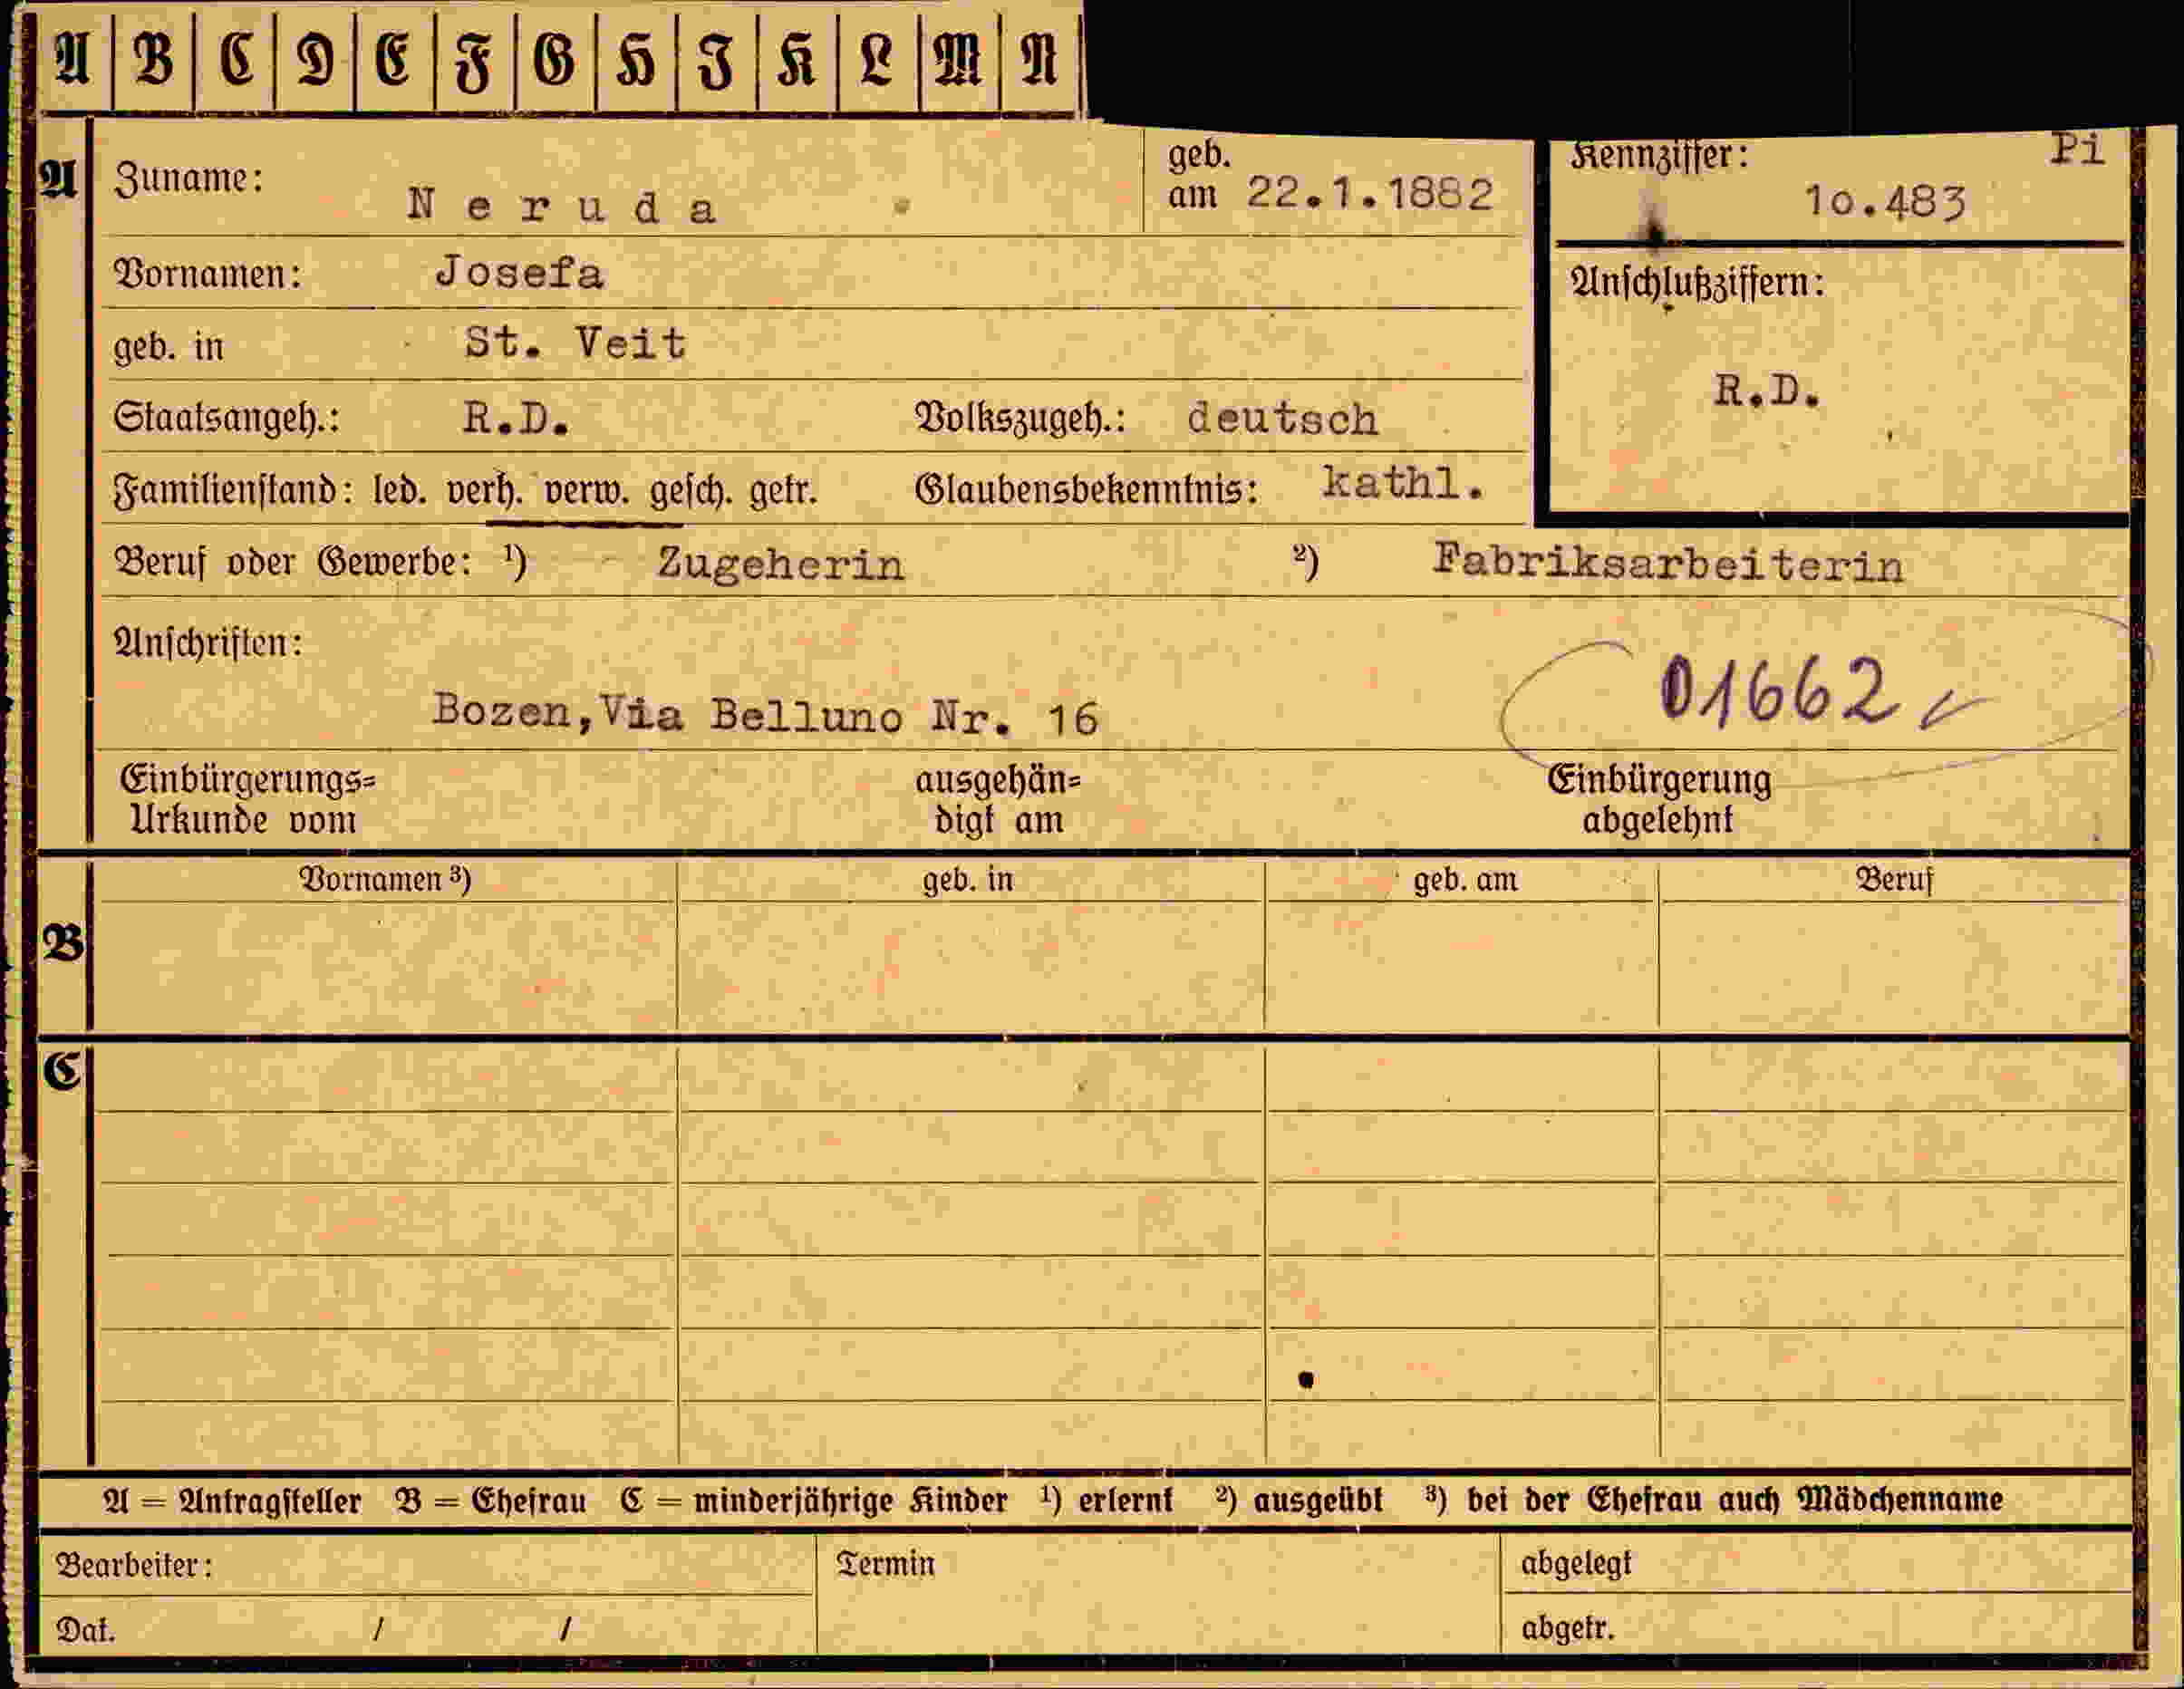 A B C D E F G H I K L M N
A Zuname: Neruda geb. am 22.1.1882
Kennziffer: Pi
10.483
Vornamen: Josefa
Anschlußziffern:
geb. in St. Veit
R.D.
Staatsangeh.: R.D. Volkszugeh.: deutsch
Familienstand: led. verh. verw. gesch. getr. Glaubensbekenntnis: kathl.
Beruf oder Gewerbe: ¹) Zugeherin ²) Fabriksarbeiterin
Anschriften:
01662
Bozen,Via Belluno Nr. 16
Einbürgerungs= ausgehän= Einbürgerung
Urkunde vom digt am abgelehnt
Vornamen ³) geb. in geb. am Beruf
B
C
A = Antragsteller B = Ehefrau C = minderjährige Kinder ¹) erlernt ²) ausgeübt ³) bei der Ehefrau auch Mädchenname
Bearbeiter: Termin abgelegt
Dat. / / abgetr.